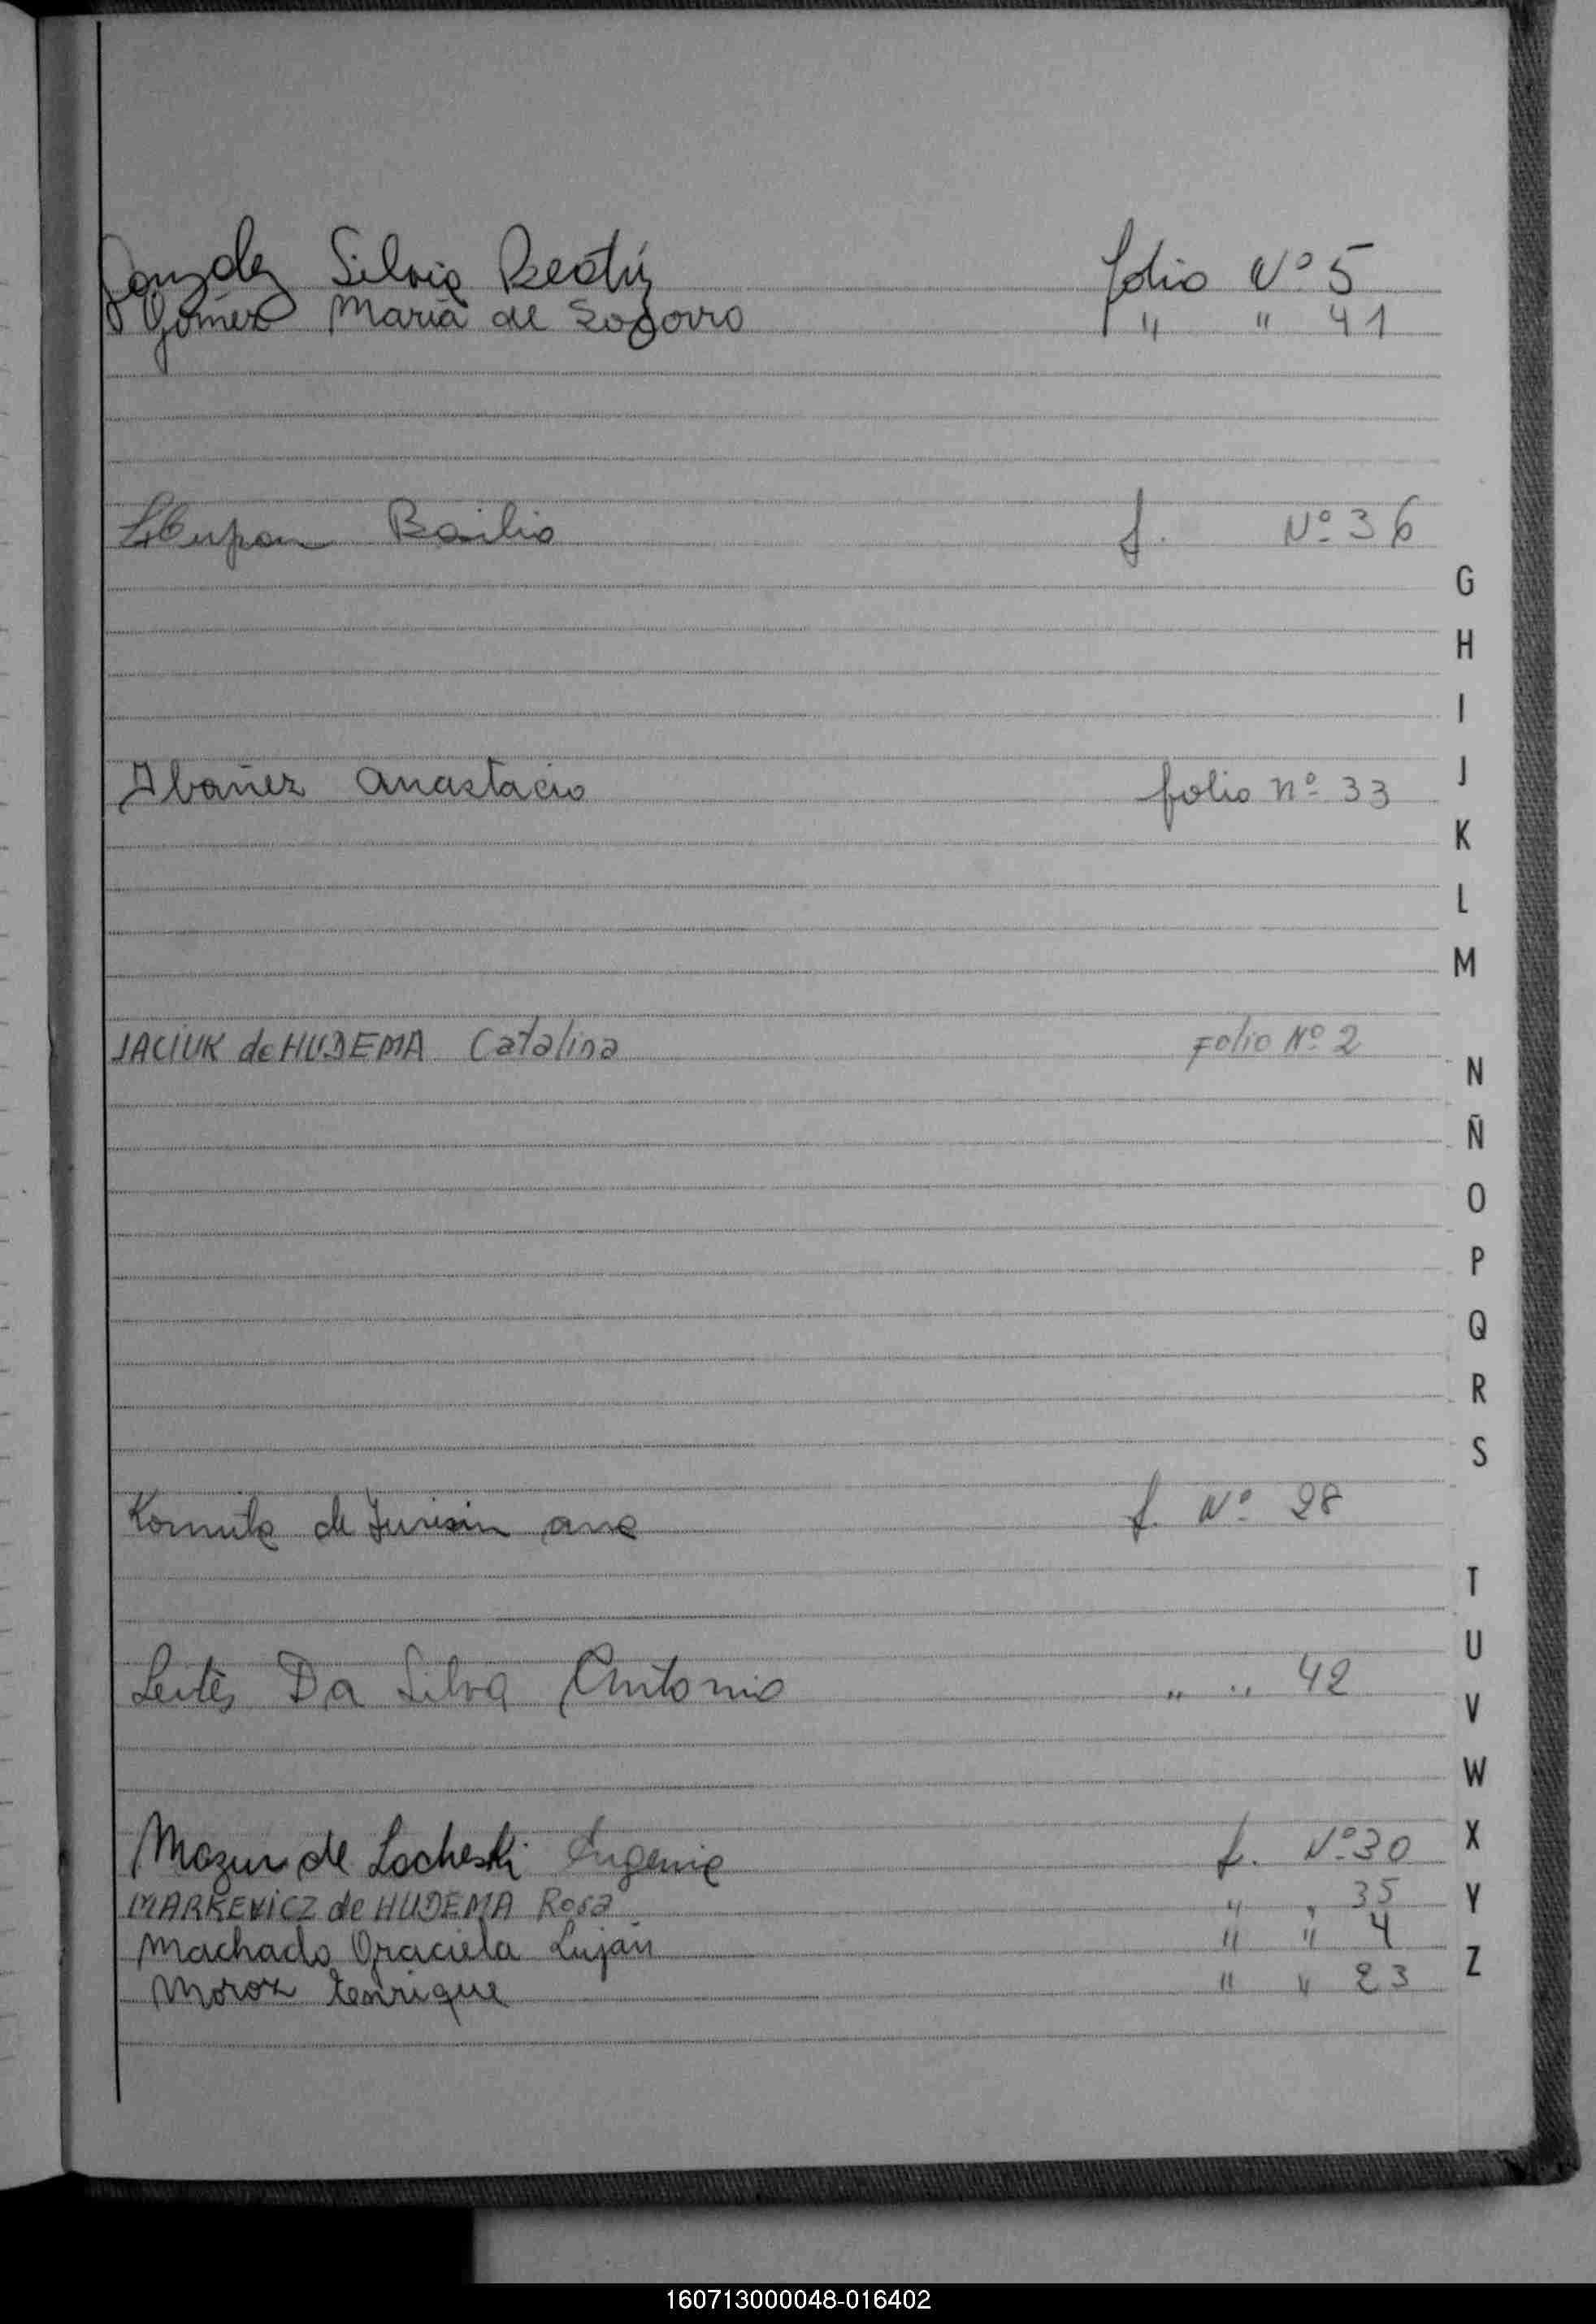 Gonzalez Silvia Beatriz folio Nº 5
Gómez Maria del Socorro " " 41
Basilio f. Nº 36
G
H
I
Ibañez Anastacio folio nº 33
J
K
L
M
JACIUK de HUDEMA Catalina Folio Nº 2
N
Ñ
O
P
Q
R
S
de Ana f. Nº 28
T
U
Leites Da Silva Antonio " " 42
V
W
Mazur de Locheski Eugenia f. Nº 30
X
MARKEVICZ de HUDEMA Rosa " " 35
Y
Machado Graciela Luján " " 4
Z
Moroz Enrique " " 23
160713000048-016402